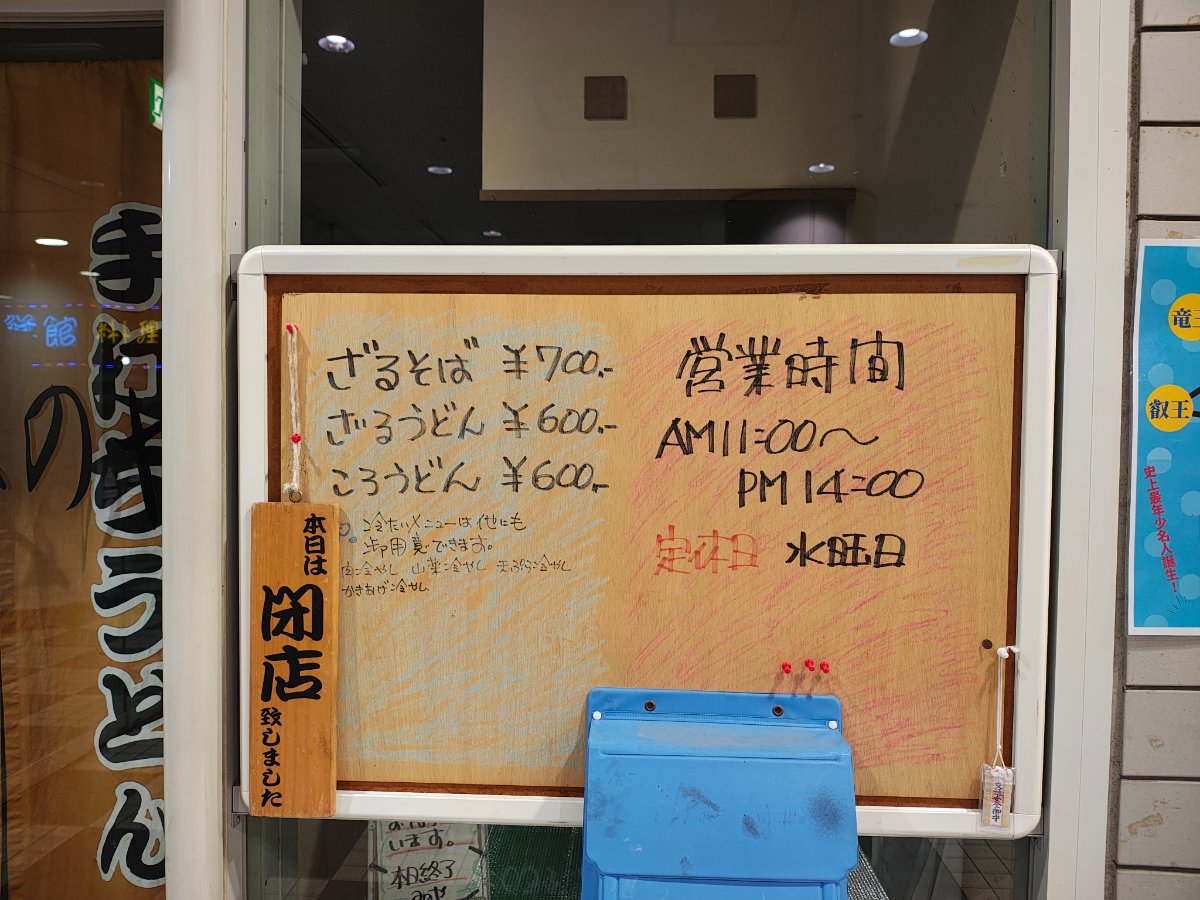 手打ちうどん
の
館 料理
ざるそば ¥700.-
ざるうどん ¥600.-
ころうどん ¥600.-
冷たいメニューは他にも
御用意できます。
肉冷やし 山菜冷やし 天ぷら冷やし
かきあげ冷やし
営業時間
AM11:00〜
PM14:00
定休日 水曜日
本日は
閉店
致しました
います。
本日終了
竜王
叡王
史上最年少名人誕生!